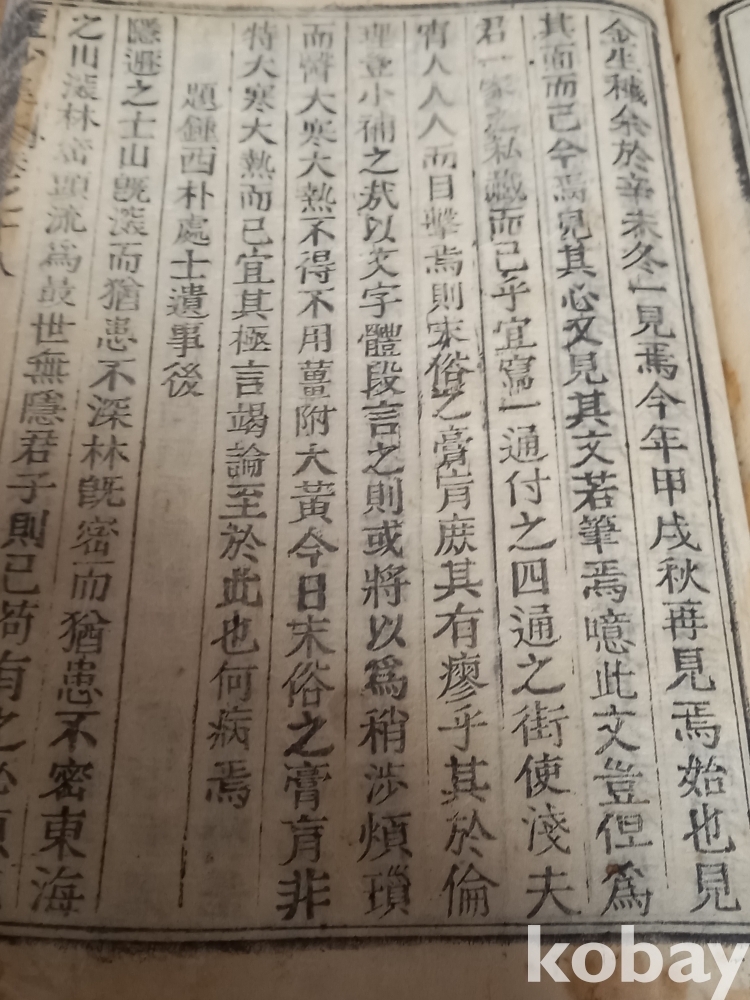 金生穢余於辛未冬一見焉今年甲戌秋再見焉始也見
其面而已今焉見其心又見其文若筆焉噫此文豈但爲
君一家之私藏而已乎宜寫一通付之四通之街使淺夫
人人人而目擊焉則末俗之膏肓庶其有瘳乎其於倫
理豈小補之哉以文字體段言之則或將以爲稍涉煩瑣
而醫大寒大熱不得不用薑附大黃今日末俗之膏肓非
特大寒大熱而已宜其極言竭論至於此也何病焉
題鍾西朴處士遺事後
隱遯之士山旣深而猶患不深林旣密而猶患不密東海
之山深林密頭流爲最世無隱君子則已苟有之必
kobay